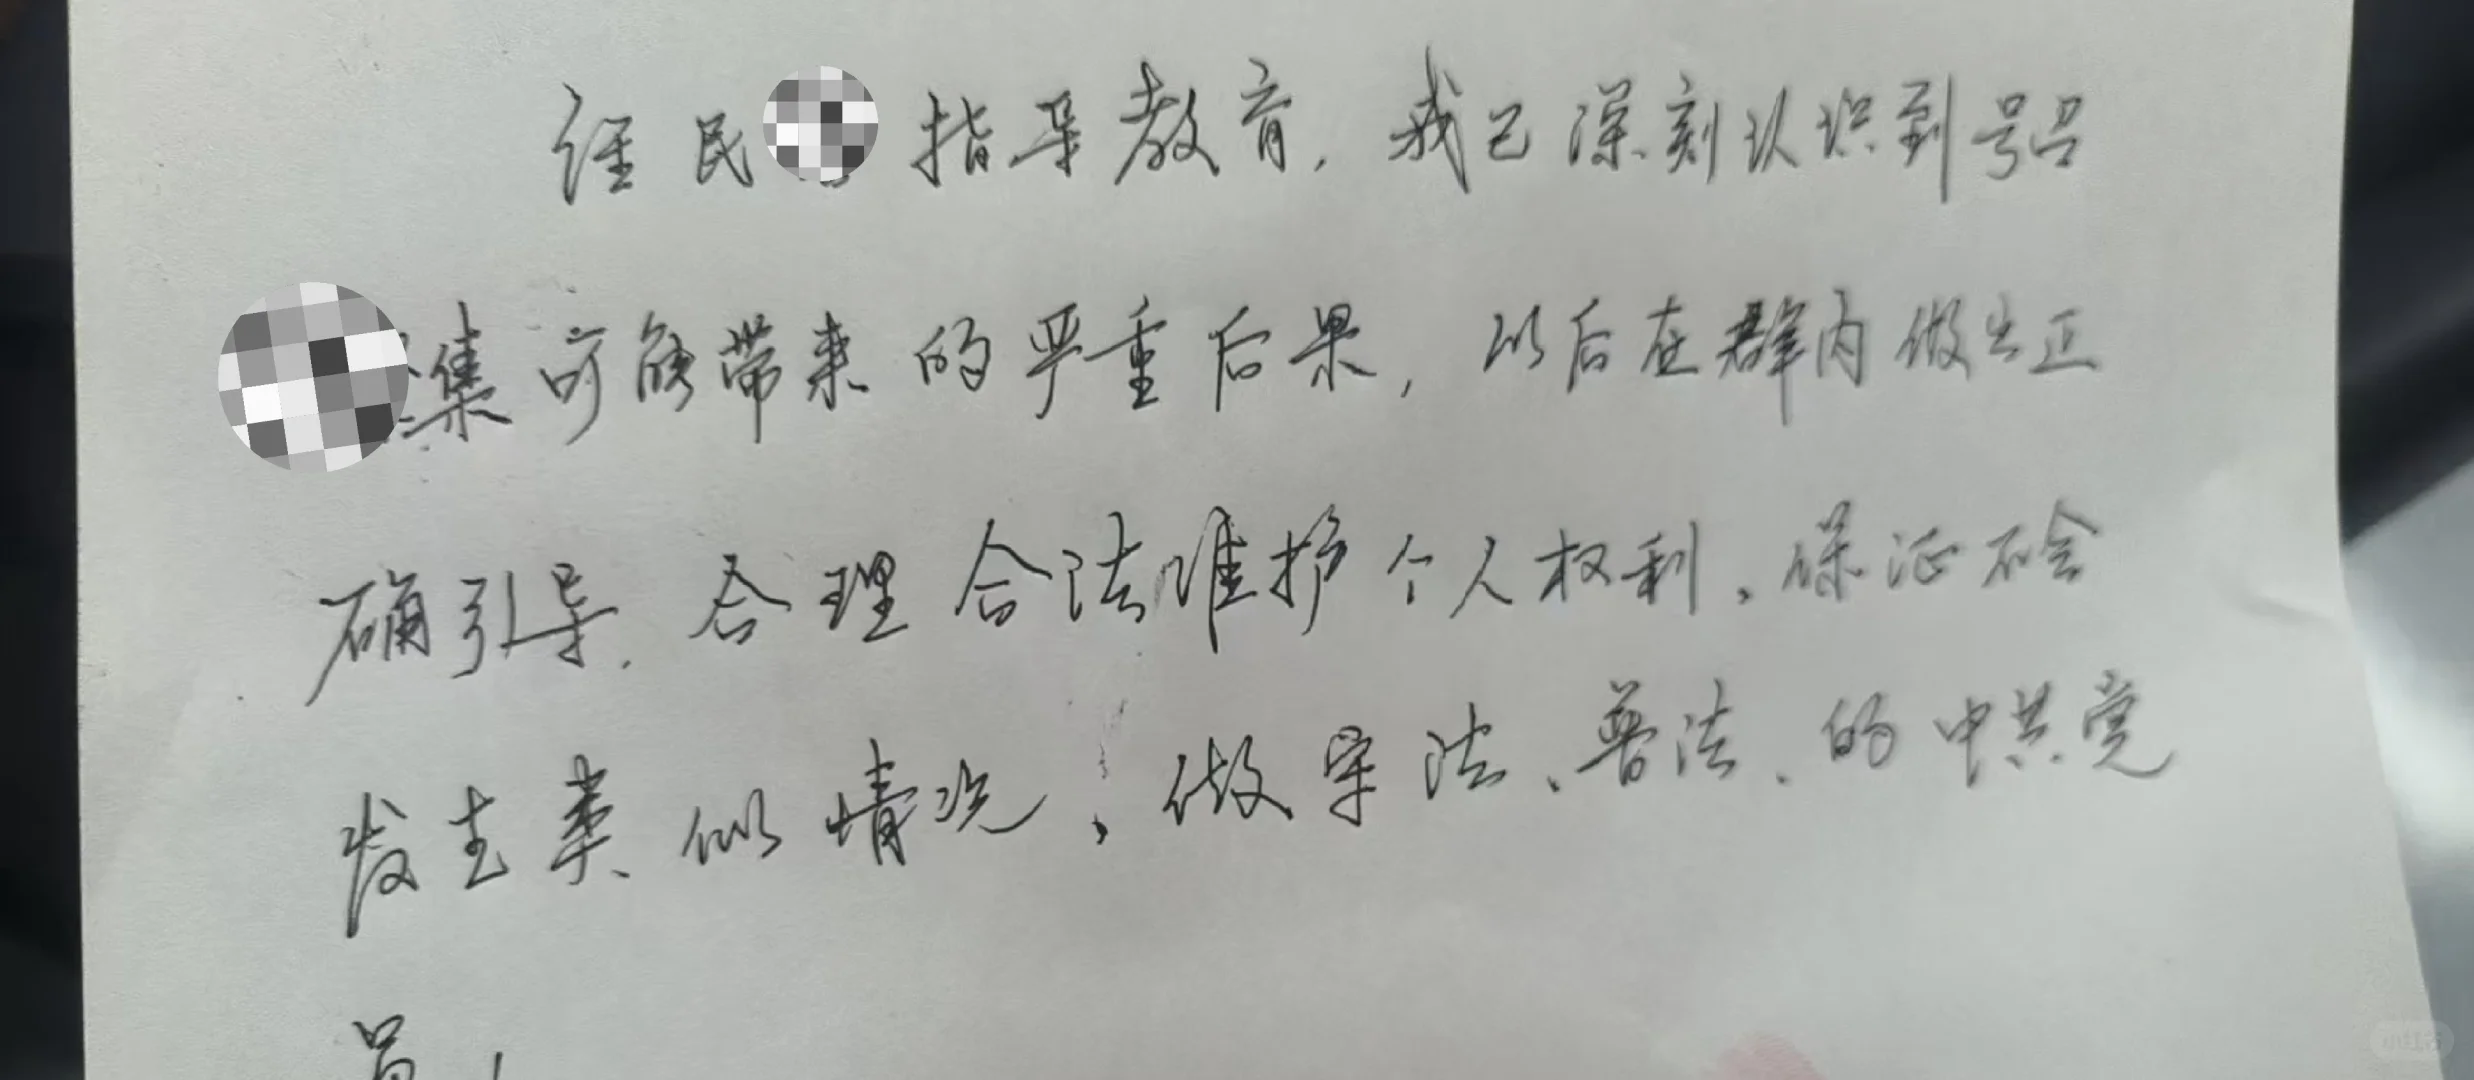 经民指导教育,我已深刻认识到号召
集可能带来的严重后果,以后在群内做出正
确引导,合理合法维护个人权利,保证不会
发生类似情况,做守法、普法、的中共党
员!
小红书